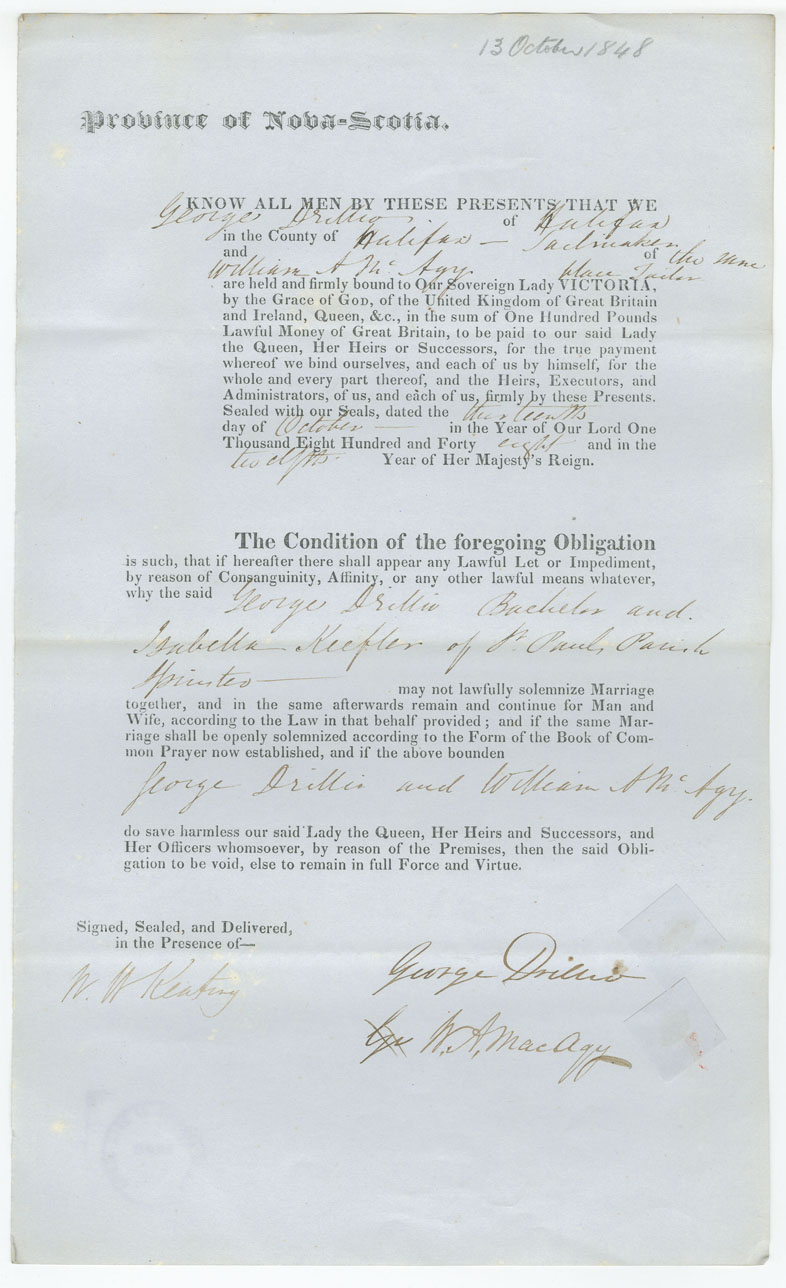 13 October 1848
Province of Nova-Scotia.
KNOW ALL MEN BY THESE PRESENTS THAT WE
George Drillio of Halifax
in the County of Halifax — Sailmaker
and of the same
William A McAgy place Tailor
are held and firmly bound to Our Sovereign Lady VICTORIA,
by the Grace of GOD, of the United Kingdom of Great Britain
and Ireland, Queen, &c., in the sum of One Hundred Pounds
Lawful Money of Great Britain, to be paid to our said Lady
the Queen, Her Heirs or Successors, for the true payment
whereof we bind ourselves, and each of us by himself, for the
whole and every part thereof, and the Heirs, Executors, and
Administrators, of us, and each of us, firmly by these Presents.
Sealed with our Seals, dated the thirteenth
day of October — in the Year of Our Lord One
Thousand Eight Hundred and Forty eight and in the
twelfth Year of Her Majesty's Reign.
The Condition of the foregoing Obligation
is such, that if hereafter there shall appear any Lawful Let or Impediment,
by reason of Consanguinity, Affinity, or any other lawful means whatever,
why the said George Drillio Bachelor and
Isabella Keefler of St Pauls Parish
Spinster — may not lawfully solemnize Marriage
together, and in the same afterwards remain and continue for Man and
Wife, according to the Law in that behalf provided; and if the same Mar-
riage shall be openly solemnized according to the Form of the Book of Com-
mon Prayer now established, and if the above bounden
George Drillio and William A McAgy.
do save harmless our said Lady the Queen, Her Heirs and Successors, and
Her Officers whomsoever, by reason of the Premises, then the said Obli-
gation to be void, else to remain in full Force and Virtue.
Signed, Sealed, and Delivered,
in the Presence of—
W. W Keating
George Drillio
W. A. MacAgy